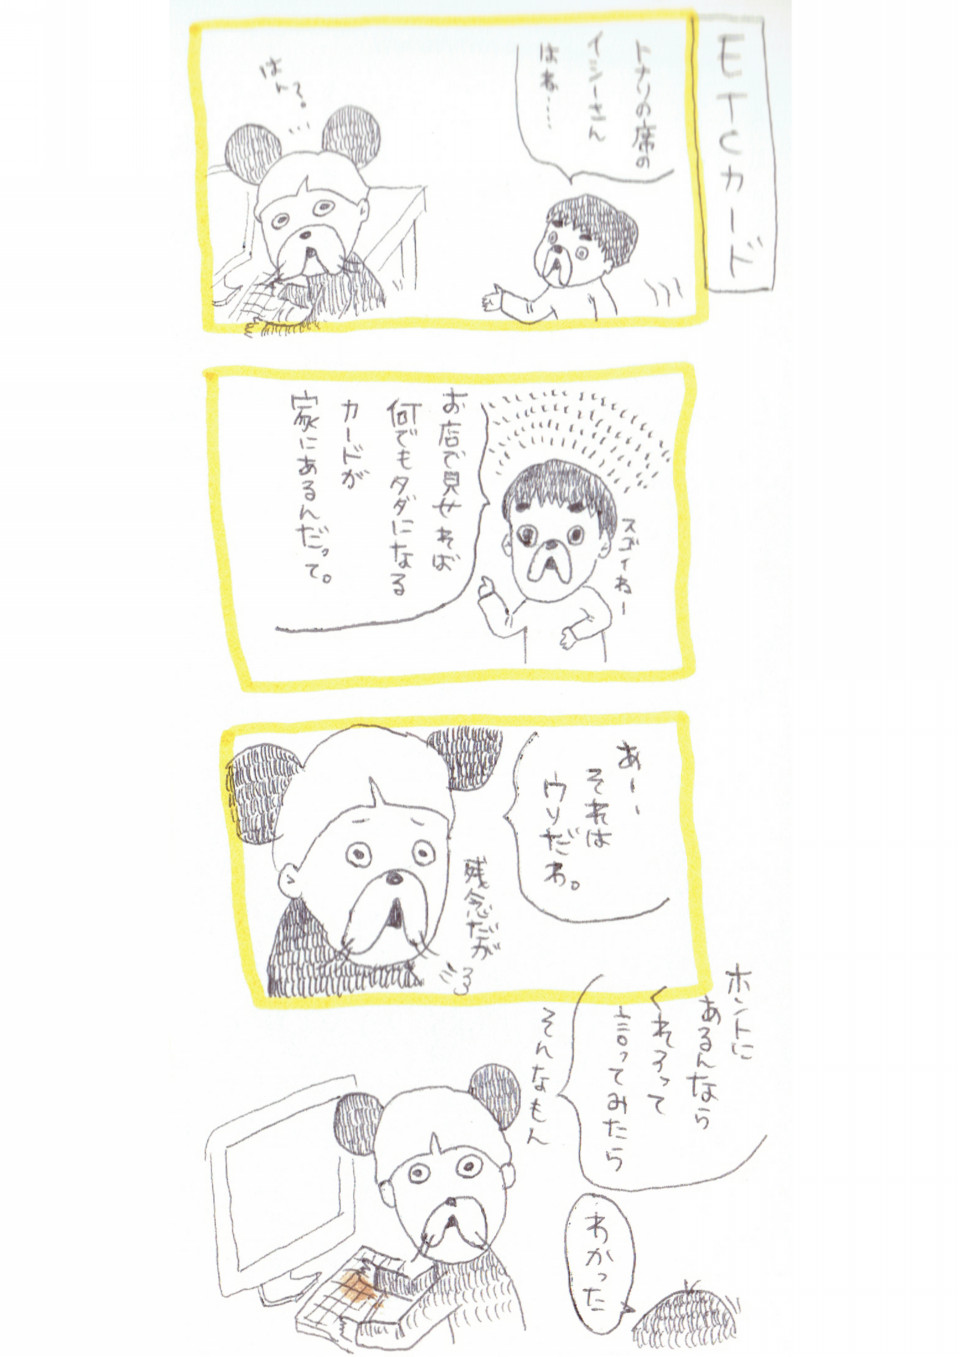 ETCカード
トナリの席の
イシーさん
はね……
はんで。
お店で見せれば
何でもタダになる
カードが
家にあるんだって。
スゴイねー
あー、
それは
ウソだわ。
残念だが
ホントに
あるんなら
くれろって
言ってみたら
そんなもん
わかった